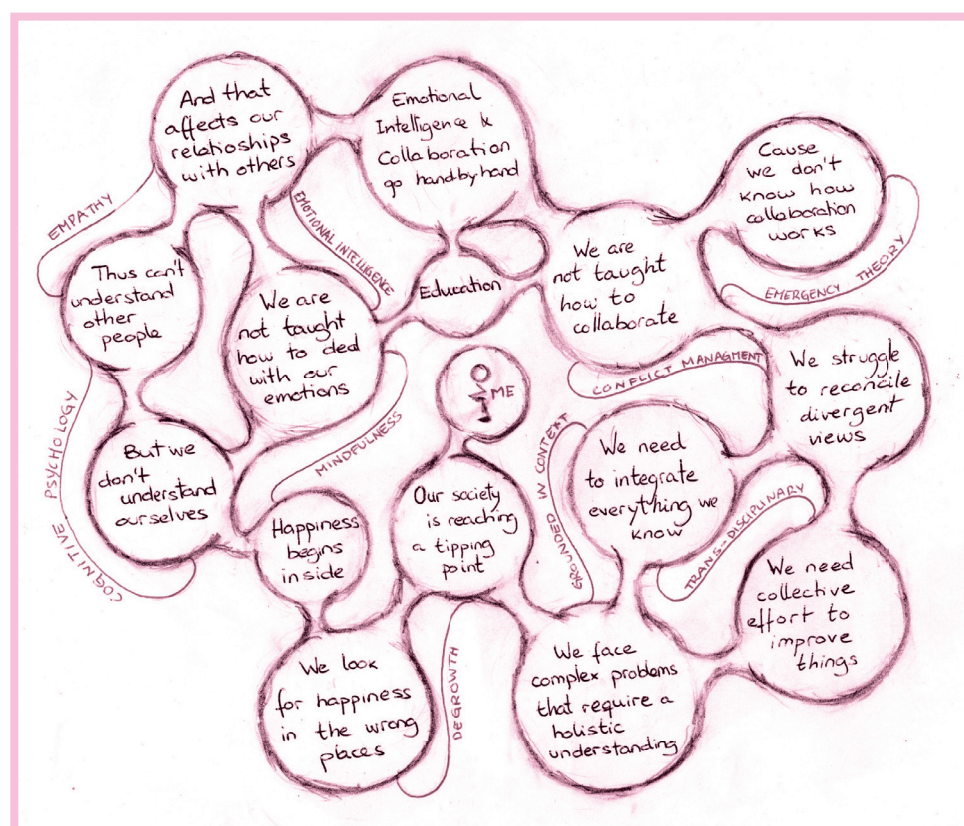 And that
affects our
relatioships
with others
Emotional
Intelligence &
Collaboration
go hand by hand
Cause
we don't
know how
collaboration
works
EMPATHY
EMOTIONAL INTELLIGENCE
Thus can't
understand
other
people
We are
not taught
how to deal
with our
emotions
Education
We are
not taught
how to
collaborate
EMERGENCY THEORY
ME
CONFLICT MANAGMENT
We struggle
to reconcile
divergent
views
COGNITIVE PSYCHOLOGY
But we
don't
understand
ourselves
MINDFULNESS
Happiness
begins
inside
Our society
is reaching
a tipping
point
GROUNDED IN CONTEXT
We need
to integrate
everything we
know
TRANS-DISCIPLINARY
We need
collective
effort to
improve
things
We look
for happiness
in the wrong
places
DEGROWTH
We face
complex problems
that require a
holistic
understanding